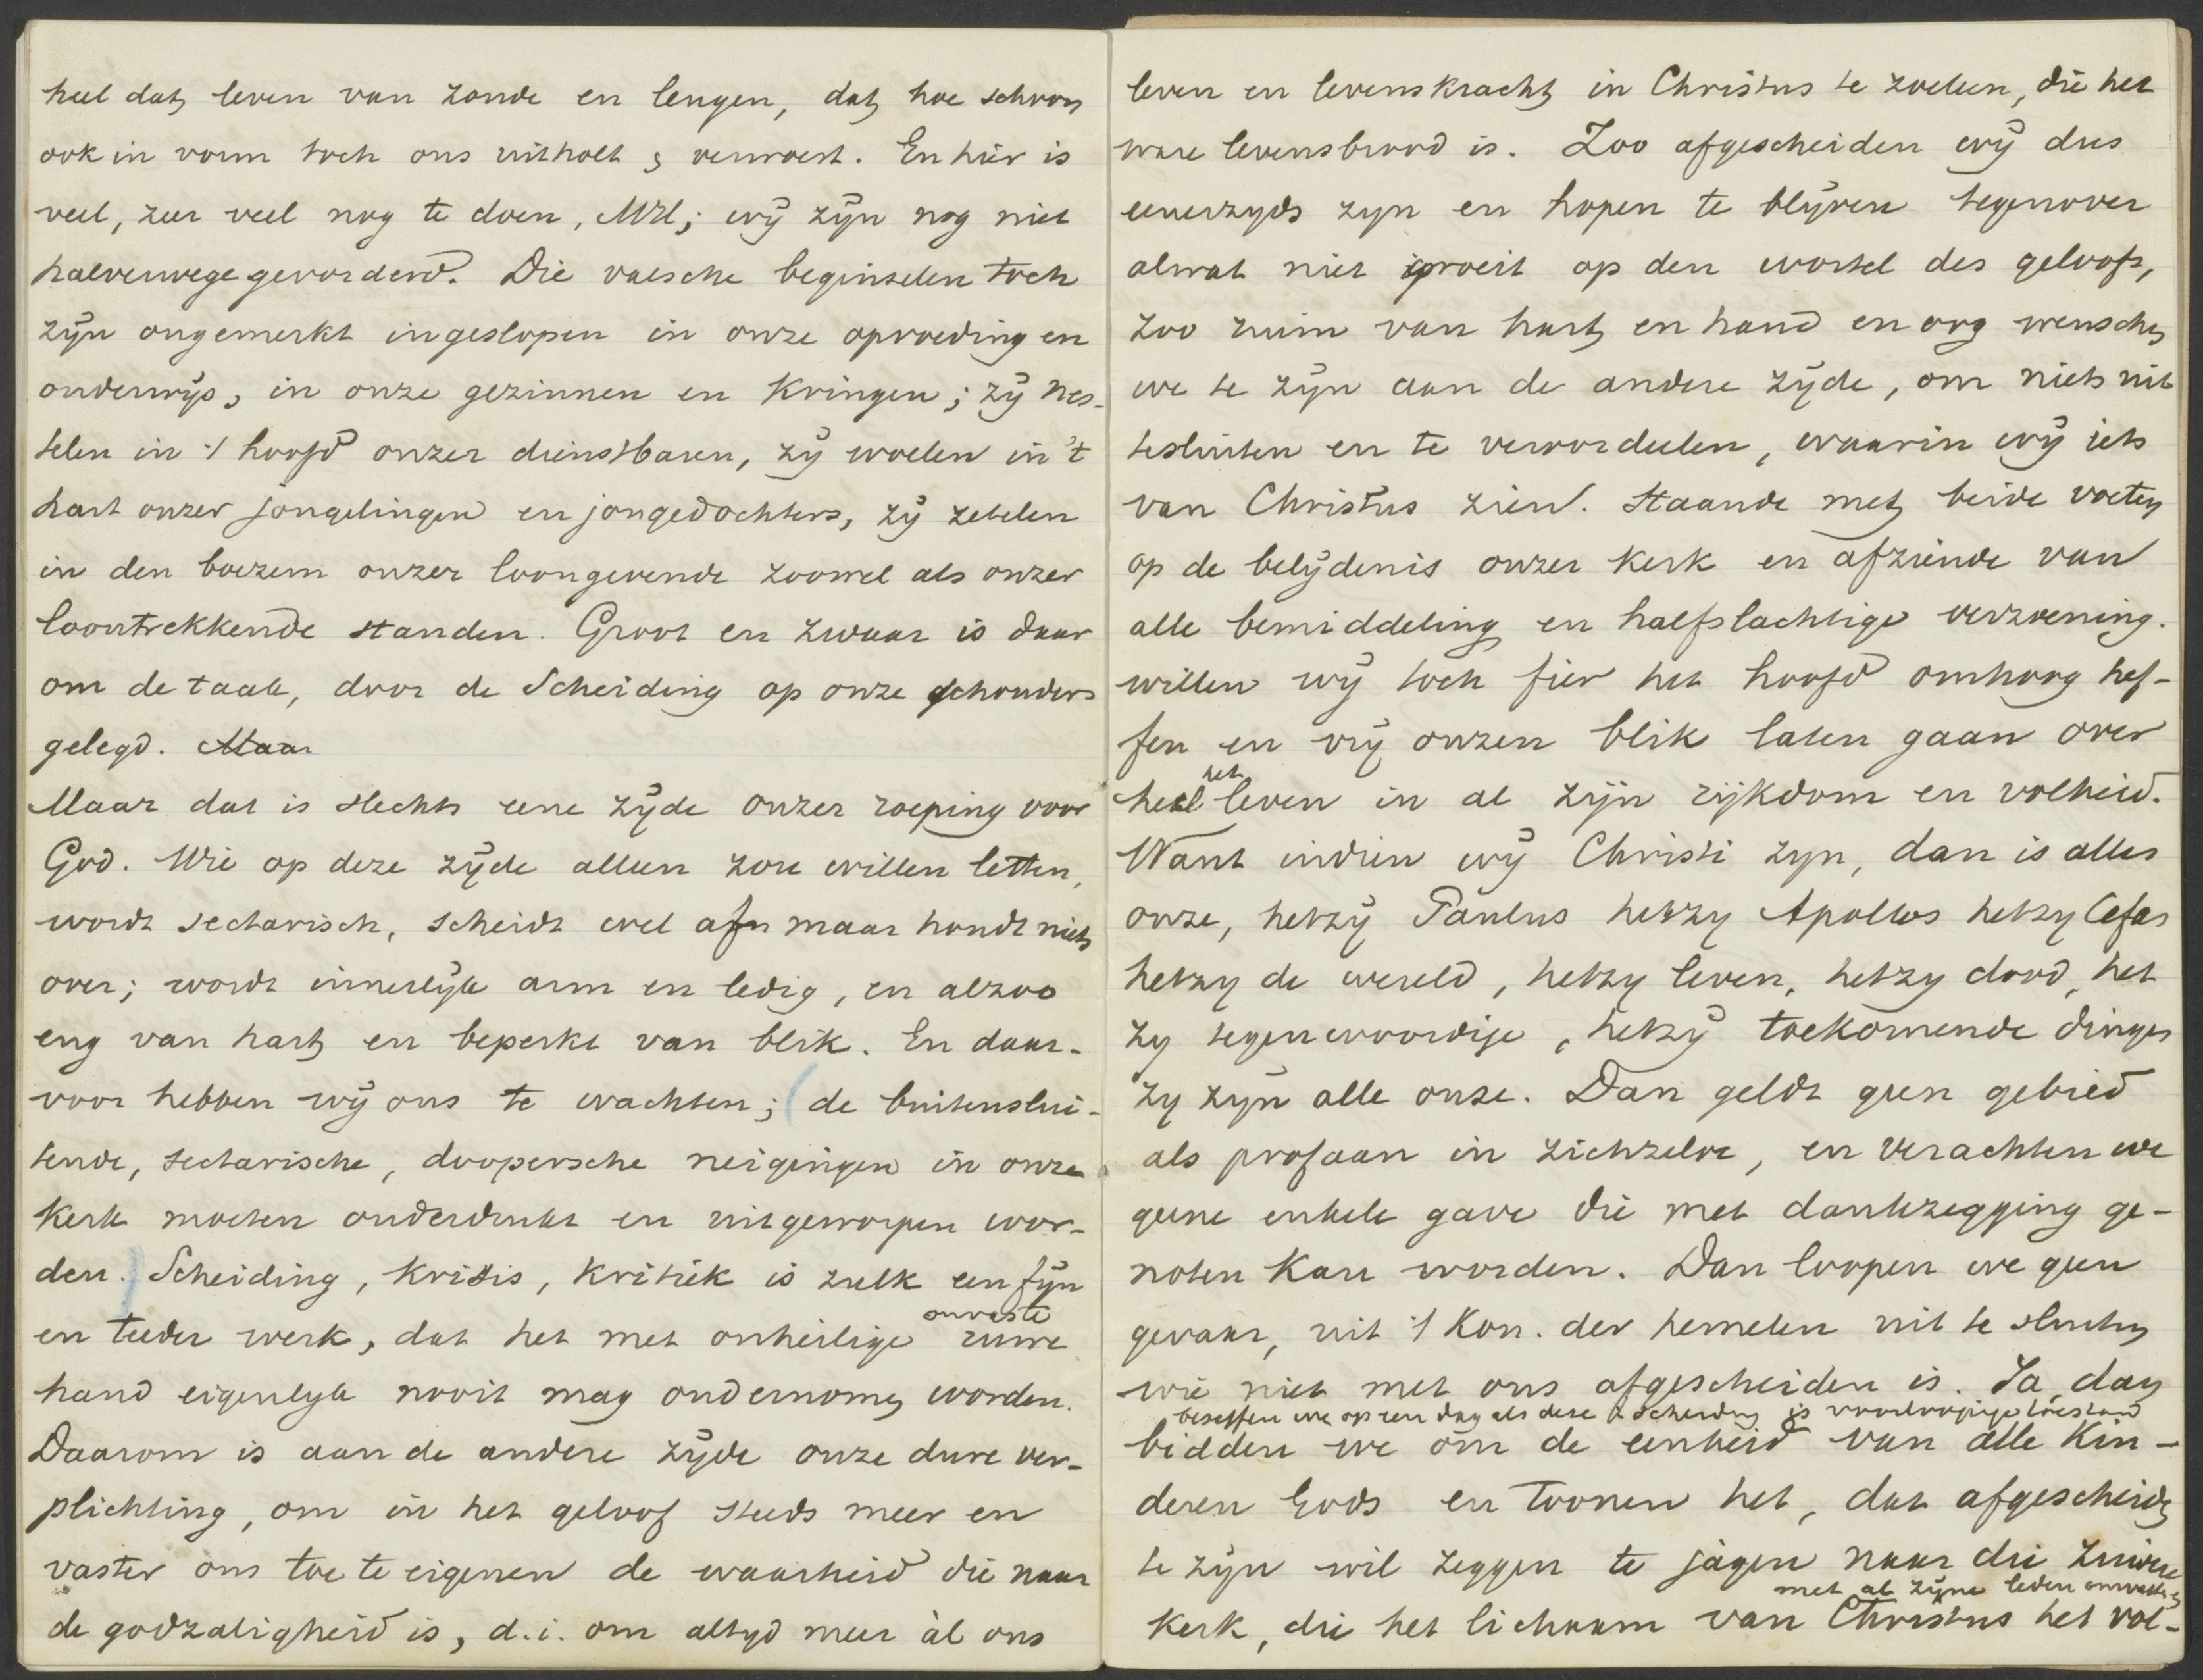 heel dat leven van zonde en leugen, dat hoe schoon
ook in vorm toch ons uitholt & verwoest. En hier is
veel, zeer veel nog te doen, MH; wij zijn nog niet
halverwege gevorderd. Die valsche beginselen toch
zijn ongemerkt ingeslopen in onze opvoeding en
onderwijs, in onze gezinnen en kringen; zij nes-
telen in 't hoofd onzer dienstbaren, zij woelen in 't
hart onzer jongelingen en jongedochters, zij zetelen
in den boezem onzer loongevende zoowel als onzer
loontrekkende standen. Groot en zwaar is daar
om de taak, door de Scheiding op onze schouders
gelegd. Maar
Maar dat is slechts eene zijde onzer roeping voor
God. Wie op deze zijde alleen zou willen letten,
wordt sectarisch, scheidt wel af maar houdt niets
over; wordt innerlijk arm en ledig, en alzoo
eng van hart en beperkt van blik. En daar-
voor hebben wij ons te wachten; (de buitenslui-
tende, sectarische, doopersche neigingen in onze
kerk moeten onderdrukt en uitgeworpen wor-
den.) Scheiding, krisis, kritiek is zulk een fijn
onvaste
en teeder werk, dat het met onheilige ruwe
hand eigenlijk nooit mag ondernomen worden.
Daarom is aan de andere zijde onze dure ver-
plichting, om in het geloof steeds meer en
vaster ons toe te eigenen de waarheid die naar
de godzaligheid is, d.i. om altijd meer àl ons
leven en levenskracht in Christus te zoeken, die het
ware levensbrood is. Zoo afgescheiden wij dus
eenerzyds zyn en hopen te blijven tegenover
alwat niet groeit op den wortel des geloofs,
zoo ruim van hart en hand en oog wenschen
we te zijn aan de andere zijde, om niets uit
tesluiten en te veroordeelen, waarin wij iets
van Christus zien. Staande met beide voeten
op de belijdenis onzer kerk en afziende van
alle bemiddeling en halfslachtige verzoening.
willen wij toch fier het hoofd omhoog hef-
fen en vrij onzen blik laten gaan over
het
heel leven in al zijn rijkdom en volheid.
Want indien wij Christi zyn, dan is alles
onze, hetzij Paulus hetzy Apollos hetzy Cefas
hetzy de wereld, hetzy leven, hetzy dood, het
zy tegenwoordige, hetzij toekomende dingen
zy zijn alle onze. Dan geldt geen gebied
als profaan in zichzelve, en verachten we
geene enkele gave die met dankzegging ge-
noten kan worden. Dan loopen we geen
gevaar, uit 't Kon. der hemelen uit te sluiten
wie niet met ons afgescheiden is. Ja, dan
beseffen we op een dag als deze scheiding is voorloopige toestand
bidden we om de eenheid van alle kin-
deren Gods en toonen het, dat afgescheiden
te zijn wil zeggen te jagen naar die zuivere
met al zijne leden omvatten
kerk, die het lichaam van Christus het vol-